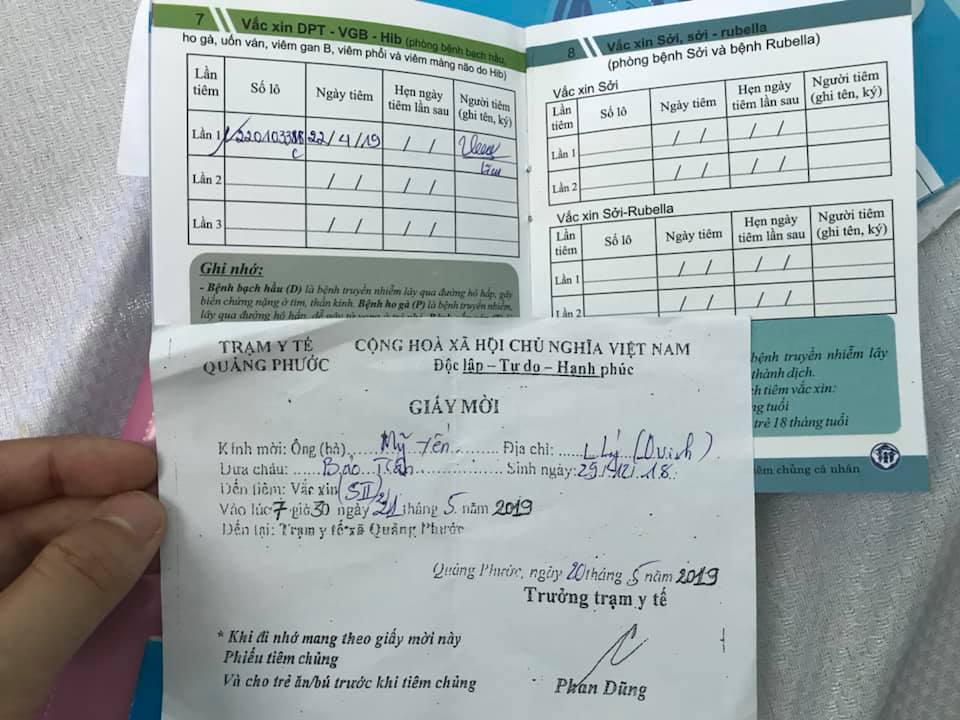 7 Vắc xin DPT - VGB - Hib (phòng bệnh bạch hầu,
ho gà, uốn ván, viêm gan B, viêm phổi và viêm màng não do Hib)
Lần tiêm Số lô Ngày tiêm Hẹn ngày tiêm lần sau Người tiêm (ghi tên, ký)
Lần 1 22/4/19 / /
Lần 2 / / / /
Lần 3 / / / /
Ghi nhớ:
- Bệnh bạch hầu (D) là bệnh truyền nhiễm lây qua đường hô hấp, gây
biến chứng nặng ở tim, thần kinh. Bệnh ho gà (P) là bệnh truyền nhiễm,
lây qua đường hô hấp, dễ gây tử vong ở trẻ nhỏ.
8 Vắc xin Sởi, sởi - rubella
(phòng bệnh Sởi và bệnh Rubella)
Vắc xin Sởi
Lần tiêm Số lô Ngày tiêm Hẹn ngày tiêm lần sau Người tiêm (ghi tên, ký)
Lần 1 / / / /
Lần 2 / / / /
Vắc xin Sởi-Rubella
Lần tiêm Số lô Ngày tiêm Hẹn ngày tiêm lần sau Người tiêm (ghi tên, ký)
Lần 1 / / / /
Lần 2 / / / /
bệnh truyền nhiễm lây
thành dịch.
ch tiêm vắc xin:
g tuổi
trẻ 18 tháng tuổi
iêm chủng cá nhân
TRẠM Y TẾ CỘNG HOÀ XÃ HỘI CHỦ NGHĨA VIỆT NAM
QUẢNG PHƯỚC Độc lập – Tự do – Hạnh phúc
GIẤY MỜI
Kính mời: Ông (bà) Mỹ Yến Địa chỉ: L Lý
Đưa cháu: Bảo Sinh ngày: 29.12.18
Đến tiêm: Vắc xin (SII)
Vào lúc 7 giờ 30 ngày 21 tháng 5 năm 2019
Đến tại: Trạm y tế xã Quảng Phước
Quảng Phước, ngày 20 tháng 5 năm 2019
Trưởng trạm y tế
* Khi đi nhớ mang theo giấy mời này
Phiếu tiêm chủng
Và cho trẻ ăn/bú trước khi tiêm chủng
Phan Dũng